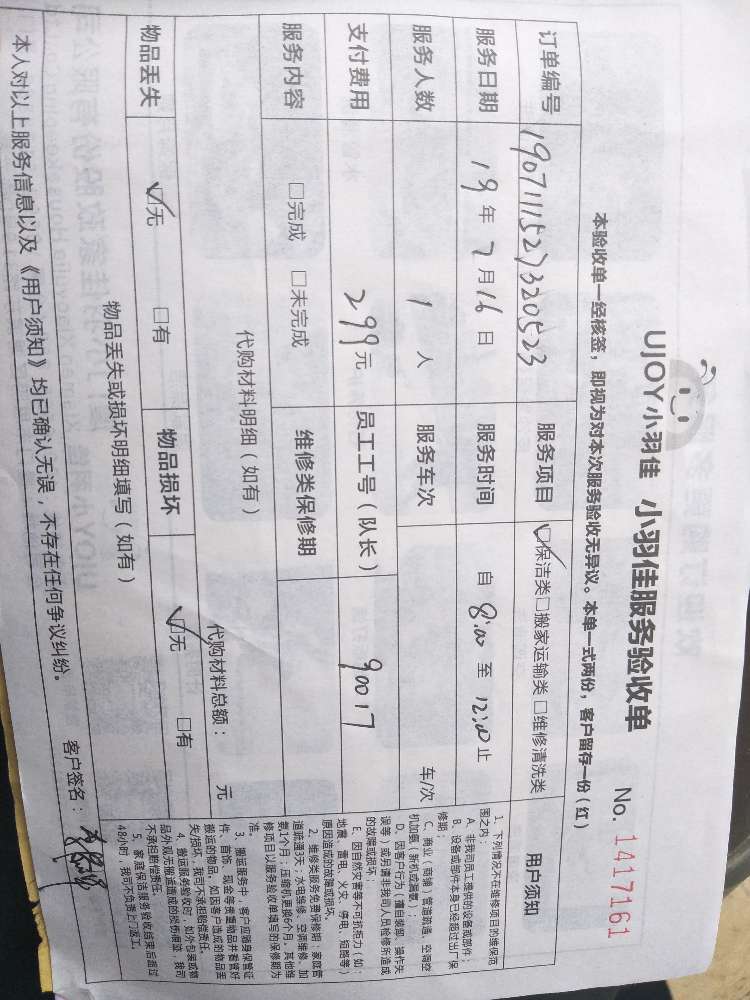 UJOY小羽佳 小羽佳服务验收单 No. 1417161
本验收单一经核签，即视为对本次服务验收无异议。本单一式两份，客户留存一份（红）
订单编号 1907111527320523 服务项目 ☑保洁类□搬家运输类□维修清洗类
服务日期 19年7月16日 服务时间 自8:00至12:00止
服务人数 1人 服务车次 车/次
支付费用 299元 员工工号（队长） 90017
服务内容 □完成 □未完成 维修类保修期
代购材料明细（如有）
代购材料总额： 元
物品丢失 ☑无 □有 物品损坏 ☑无 □有
物品丢失或损坏明细填写（如有）
本人对以上服务信息以及《用户须知》均已确认无误，不存在任何争议纠纷。
客户签名：
用户须知
1、下列情况不在维修项目的维保范
围之内：
A、非我司员工提供的设备或部件；
B、设备或部件本身已经超过出厂保
修期；
C、商业（商铺）管道疏通，空调空
机加氨（新机或漏氨）；
D、因客户行为（擅自装卸、操作失
误等）或另请非我司人员检修所造成
的故障或损坏；
E、因自然灾害等不可抗拒力（如：
地震、雷电、火灾、停电、短路等）
原因造成的故障或损坏。
2、维修类服务免费保修期：家庭管
道疏通3天；水电维修、空调维修、加
氨1个月；压缩机更换6个月。其他维
修项目以服务验收单填写的保修期为
准。
3、搬运服务中，客户应随身保管证
件、首饰、现金等贵重物品并看管好
搬运的物品，如因客户造成的物品丢
失/损坏，我司不承担赔偿责任。
4、搬运服务验收时，如外包装或物
品外观无搬运造成的损伤痕迹，我司
不承担赔偿责任。
5、家庭保洁服务验收结束后超过
48小时，我司不负责上门返工。